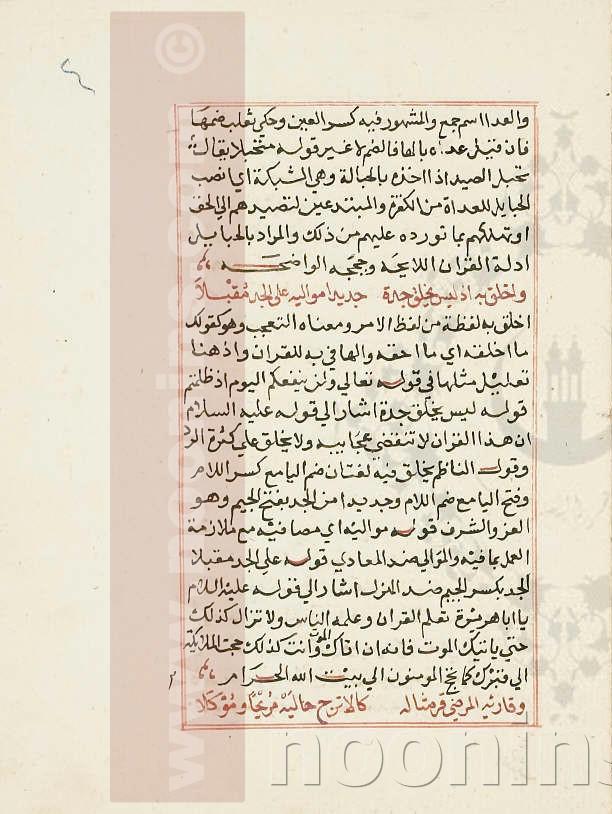 والعدا اسم جمع والمشهور فيه كسر العين وحكي ثعلب ضمها
فان قيل عداه بالهاء فالضم لا غير قوله متحبلا يقال
تحبل الصيد اذا اخذه بالحبالة وهي الشبكة اي انصب
الحبايل للعداة من الكفرة والمبتدعين لتصيدهم الي الحق
او تهلكهم بما تورده عليهم من ذلك والمراد بالحبايل
ادلة القران اللايحه وحججه الواضحه
واخلق به اذ ليس يخلق جدة جديدا مواليه علي الجد مقبلا
اخلق به لفظة من لفظ الامر ومعناه التعجب وهو كقولك
ما اخلقه اي ما احقه والها في به للقران واذ هنا
تعليل مثلها في قوله تعالي ولن ينفعكم اليوم اذ ظلمتم
قوله ليس يخلق جدة اشار الي قوله عليه السلام
ان هذا القران لا تنقضي عجايبه ولا يخلق علي كثرة الرد
وقول الناظم يخلق فيه لغتان ضم اليا مع كسر اللام
وفتح اليا مع ضم اللام وجديدا من الجد بفتح الجيم وهو
العز والشرف قوله مواليه اي مصافيه مع ملازمة
العمل بما فيه والموالي ضد المعادي قوله علي الجد مقبلا
الجد بكسر الجيم ضد الهزل اشار الي قوله عليه السلام
يا ابا هريرة تعلم القران وعلمه الناس ولا تزال كذلك
حتي ياتيك الموت فانه ان اتاك الموت وانت كذلك حجت الملايكة
الي قبرك كما يحج المومنون الي بيت الله الحرام
وقارئه المرضي قر مثاله كالاترج حاليه مريحا وموكلا
www.noorinc
noorins
©